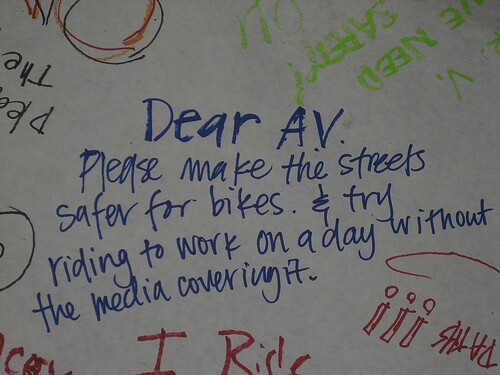 Dear AV.
Please make the streets
safer for bikes. & try
riding to work on a day without
the media covering it.
WE NEED
SAFETY!
V.
The
I Ride
PATHS